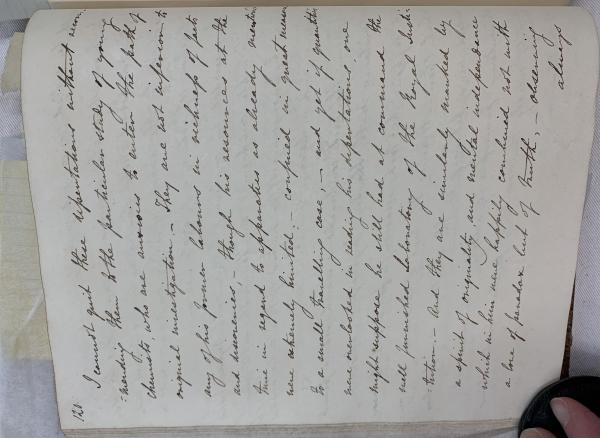 120
I cannot quit these reputations without recom-
-mending them to the particular study of young
chemists, who are anxious to enter the path of
original investigation. – They are not inferior to
any of his former labours in richness of facts
and discoveries, – though his resources at the
time in regard to apparatus as already mention
were extremely limited: – confined in great measure
to a small travelling case, – and yet if quantity
were overlooked in reading his deputations one
might suppose he still had at command the
well furnished laboratory of the Royal Insti-
tution. – And they are similarly marked by
a spirit of originality and mental independence
which in him were happily combined not with
a love of paradox but of truth, – observing
always